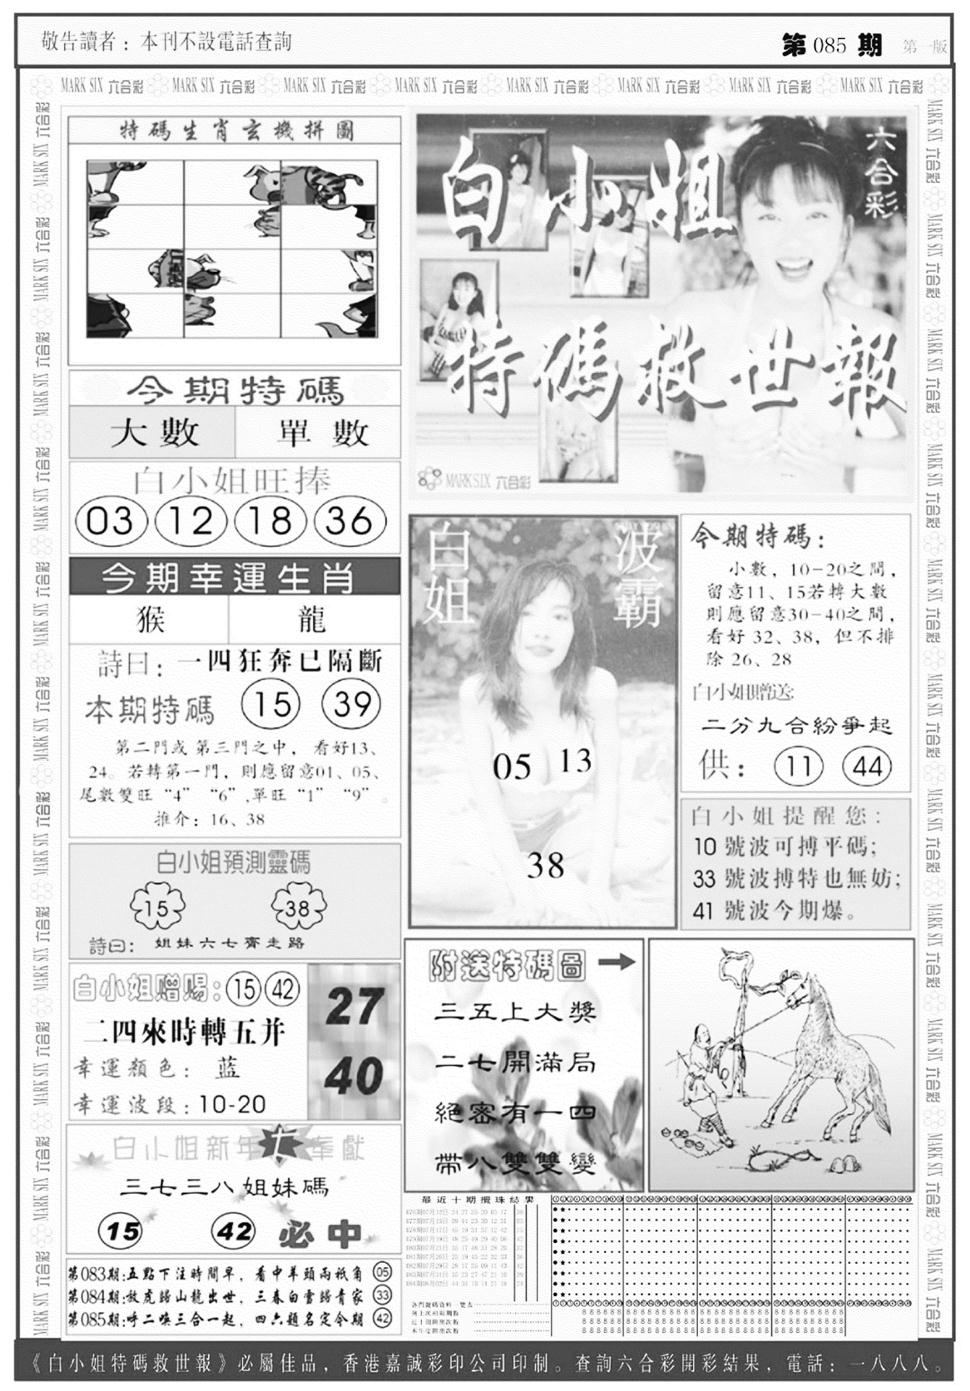 敬告讀者：本刊不設電話查詢
第 085 期 第一版
MARK SIX 六合彩 MARK SIX 六合彩 MARK SIX 六合彩 MARK SIX 六合彩 MARK SIX 六合彩 MARK SIX 六合彩 MARK SIX 六合彩 MARK SIX 六合彩
特碼生肖玄機拼圖
今期特碼
大數 單數
白小姐旺捧
03 12 18 36
今期幸運生肖
猴 龍
詩曰：一四狂奔已隔斷
本期特碼 15 39
第二門或第三門之中，看好13、
24。若轉第一門，則應留意01、05、
尾數雙旺“4”“6”,單旺“1”“9”。
推介：16、38
白小姐預測靈碼
15 38
詩曰：姐妹六七齊走路
白小姐贈賜：15 42
二四來時轉五并
幸運顏色：蓝
幸運波段：10-20
27
40
白小姐新年奉獻
三七三八姐妹碼
15 42 必中
第083期:五點下注時間早，看中羊頭兩衹角 05
第084期:放虎歸山龍出世，三春白雪歸青家 33
第085期:呼二喚三合一起，四六題名定今期 42
白小姐
六合彩
特碼救世報
MARK SIX 六合彩
白姐
波霸
05 13
38
今期特碼：
小數，10-20之間，
留意11、15若轉大數
則應留意30-40之間，
看好 32、38，但不排
除 26、28
白小姐贈送:
二分九合紛爭起
供： 11 44
白小姐提醒您：
10 號波可搏平碼；
33 號波搏特也無妨；
41 號波今期爆。
附送特碼圖
三五上大獎
二七開滿局
絕密有一四
帶八雙雙變
最近十期攪珠結果
《白小姐特碼救世報》必屬佳品，香港嘉誠彩印公司印制。查詢六合彩開彩結果，電話：一八八八。